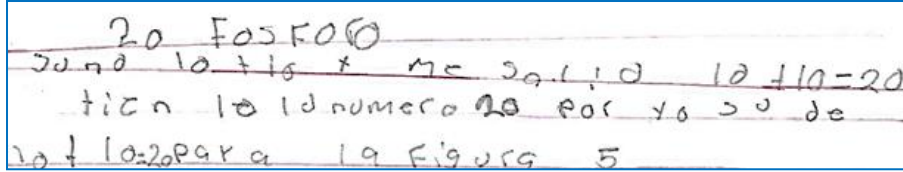 20 FosForo
sumo 10+10 y me salió 10+10=20
tien 10 numero 20 por yo su de
10+10=20 para la Figura 5